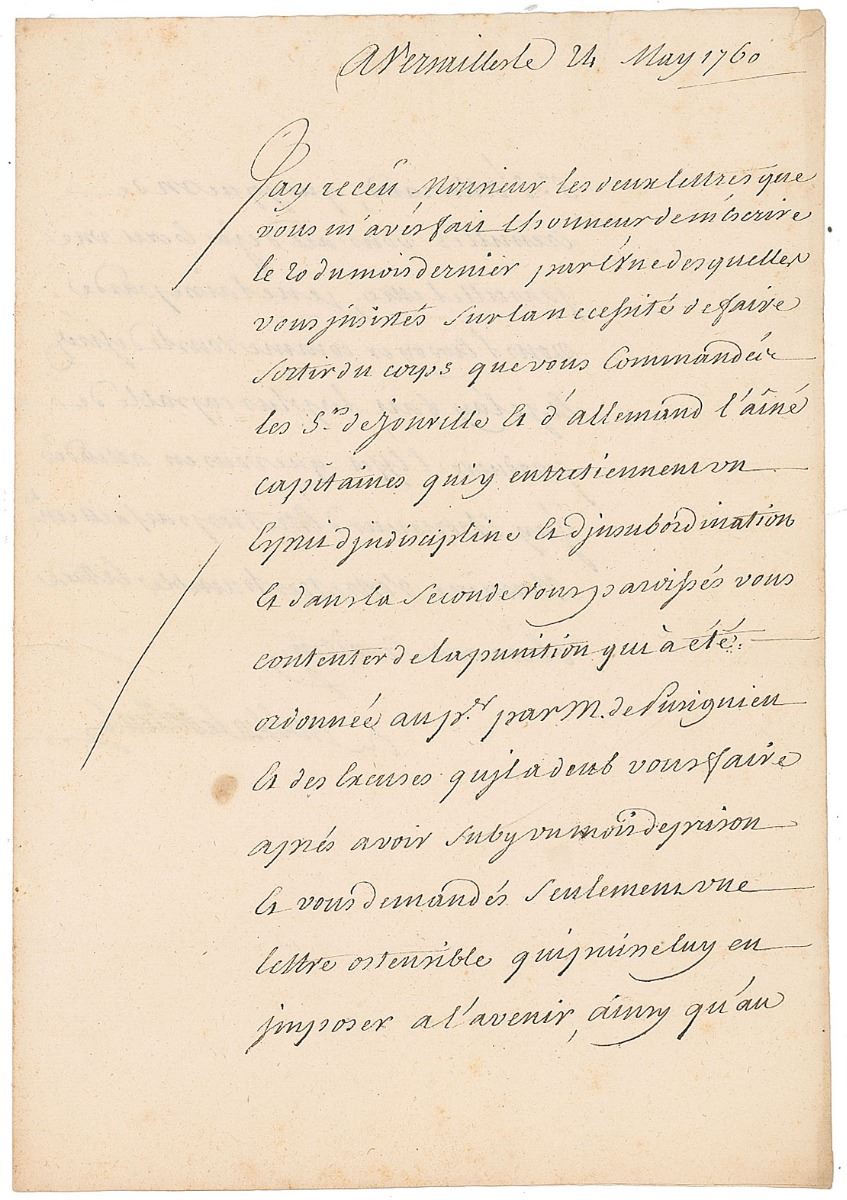 A Versailles le 24 May 1760
J'ay receu Monsieur les deux lettres que
vous m'avés fait l'honneur de m'écrire
le 20 du mois dernier par l'Une des quelles
vous jnsistés sur la necessité de faire
sortir du corps que vous Commandés
les S.rs de Jonville Et d'allemand l'aîné
capitaines qui y entretiennent un
Esprit d'jndiscipline Et d'jnsubordination
Et dans la seconde vous paroissés vous
contenter de la punition qui à été
ordonnée au p.er par M. de Puisignieu
Et des Excuses qu'jl a deub vous faire
aprés avoir suby un mois de prison
Et vous demandés seulement une
lettre ostensible qui puisse luy en
jmposer a l'avenir, ainsy qu'au